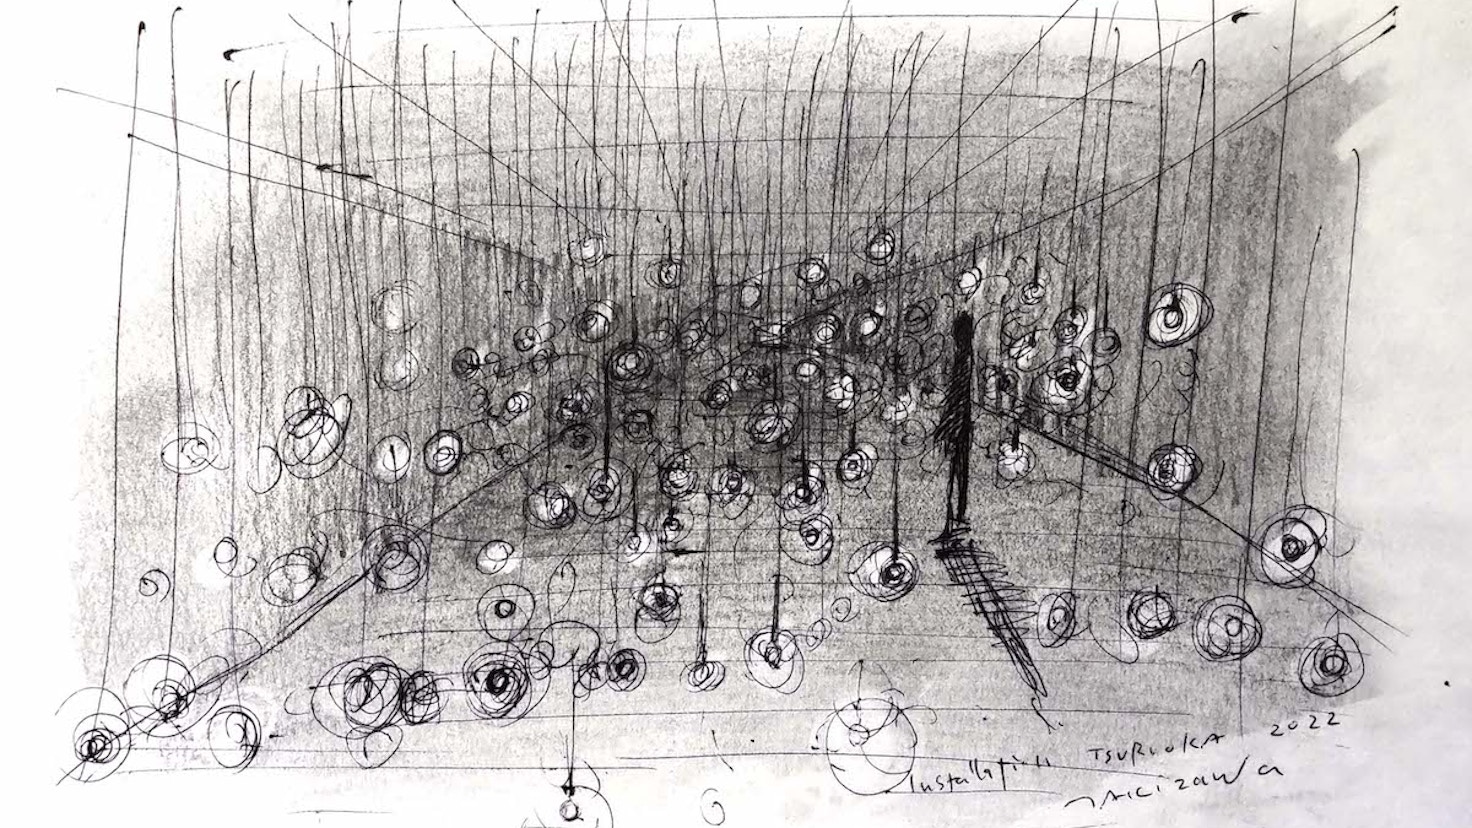 Installation TSURUOKA 2022
TAKIZAWA